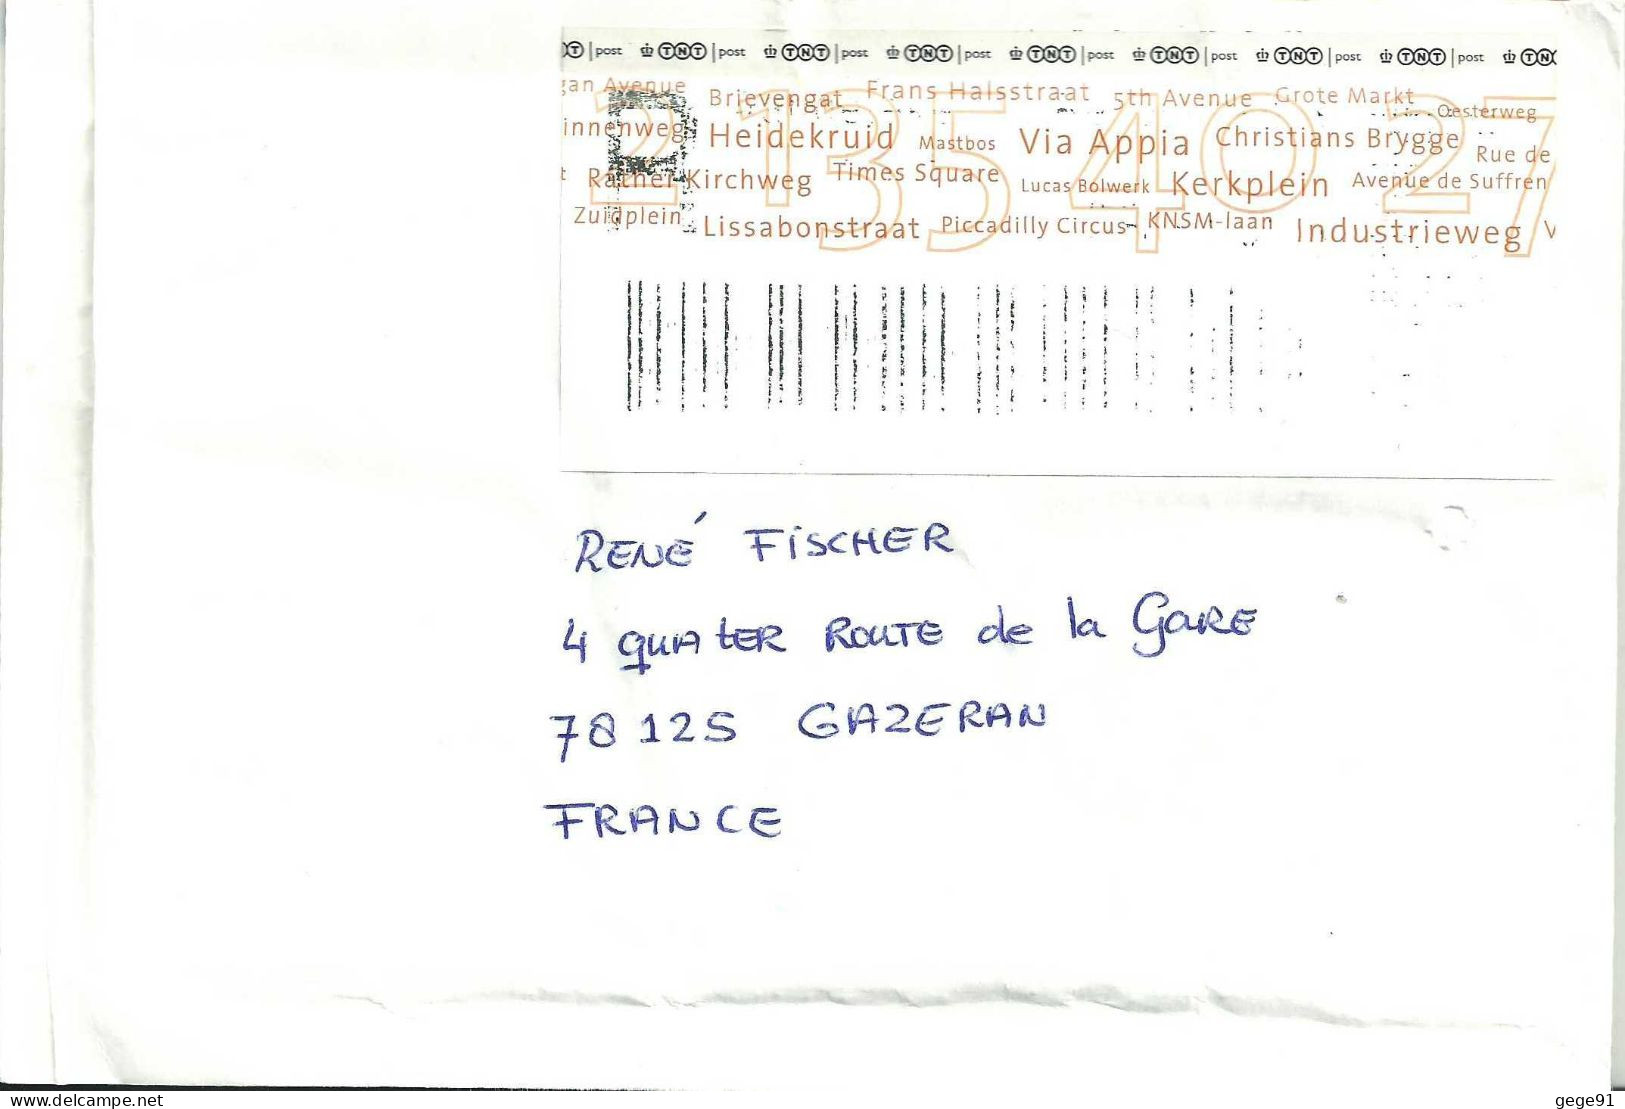 TNT | post TNT | post TNT | post TNT | post TNT | post TNT | post TNT | post TNT
gan Avenue Brievengat Frans Halsstraat 5th Avenue Grote Markt Oesterweg
innenweg Heidekruid Mastbos Via Appia Christians Brygge Rue de
t Rather Kirchweg Times Square Lucas Bolwerk Kerkplein Avenue de Suffren
Zuidplein Lissabonstraat Piccadilly Circus KNSM-laan Industrieweg V
2 135 40 27
RENÉ FISCHER
4 quater ROUTE de la GARE
78125 GAZERAN
FRANCE
delcampe.net
gege91